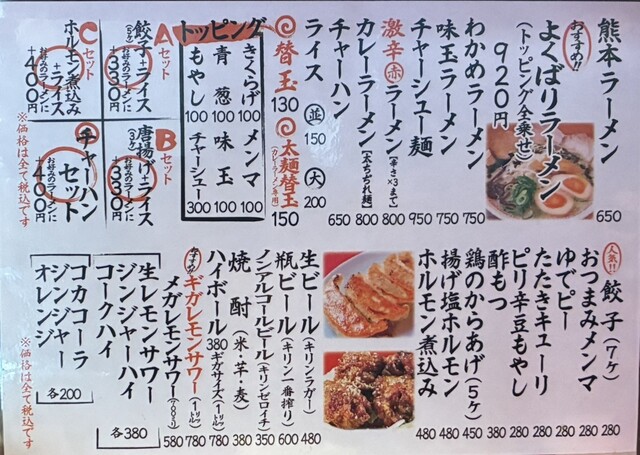 熊本ラーメン 650
おすすめ!!
よくばりラーメン
(トッピング全乗せ)
920円
わかめラーメン 750
味玉ラーメン 750
チャーシュー麺 950
激辛赤ラーメン(辛さ×3まで) 800
カレーラーメン【太ちぢれ麺】 800
チャーハン 650
ライス 並 150 大 200
替玉 130
太麺替玉 150
(カレーラーメン専用)
トッピング
きくらげ 100
青葱 100
もやし 100
メンマ 100
味玉 100
チャーシュー 300
Aセット
餃子+ライス
(3ヶ)
お好みのラーメンに
+330円
Bセット
唐揚げ+ライス
(3ヶ)
お好みのラーメンに
+330円
Cセット
ホルモン煮込み
+ライス
お好みのラーメンに
+400円
チャーハン
セット
お好みのラーメンに
+400円
※価格は全て税込です
人気!!
餃子(7ヶ) 280
おつまみメンマ 280
ゆでピー 280
たたきキューリ 280
ピリ辛豆もやし 280
酢もつ 380
鶏のからあげ(5ヶ) 450
揚げ塩ホルモン 480
ホルモン煮込み 480
生ビール(キリンラガー) 480
瓶ビール(キリン一番搾り) 600
ノンアルコールビール(キリンゼロイチ) 350
焼酎(米・芋・麦) 380
ハイボール 380 ギガサイズ(1リットル) 780
おすすめ!
ギガレモンサワー(1リットル) 780
メガレモンサワー 580
生レモンサワー
ジンジャーハイ
コークハイ
各380
コカコーラ
ジンジャー
オレンジ
各200
※価格は全て税込です